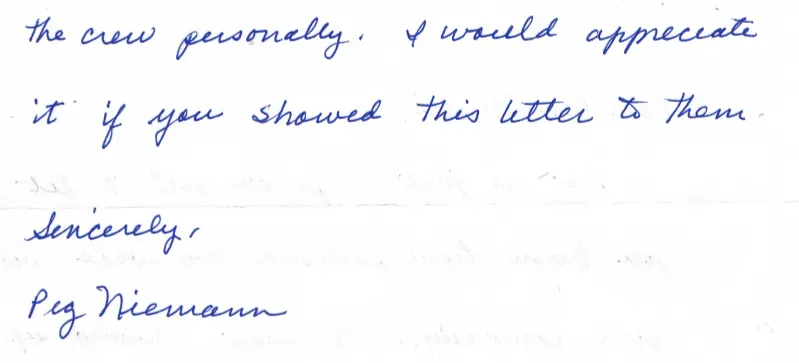 the crew personally. I would appreciate
it if you showed this letter to them.
Sincerely,
Peg Niemann